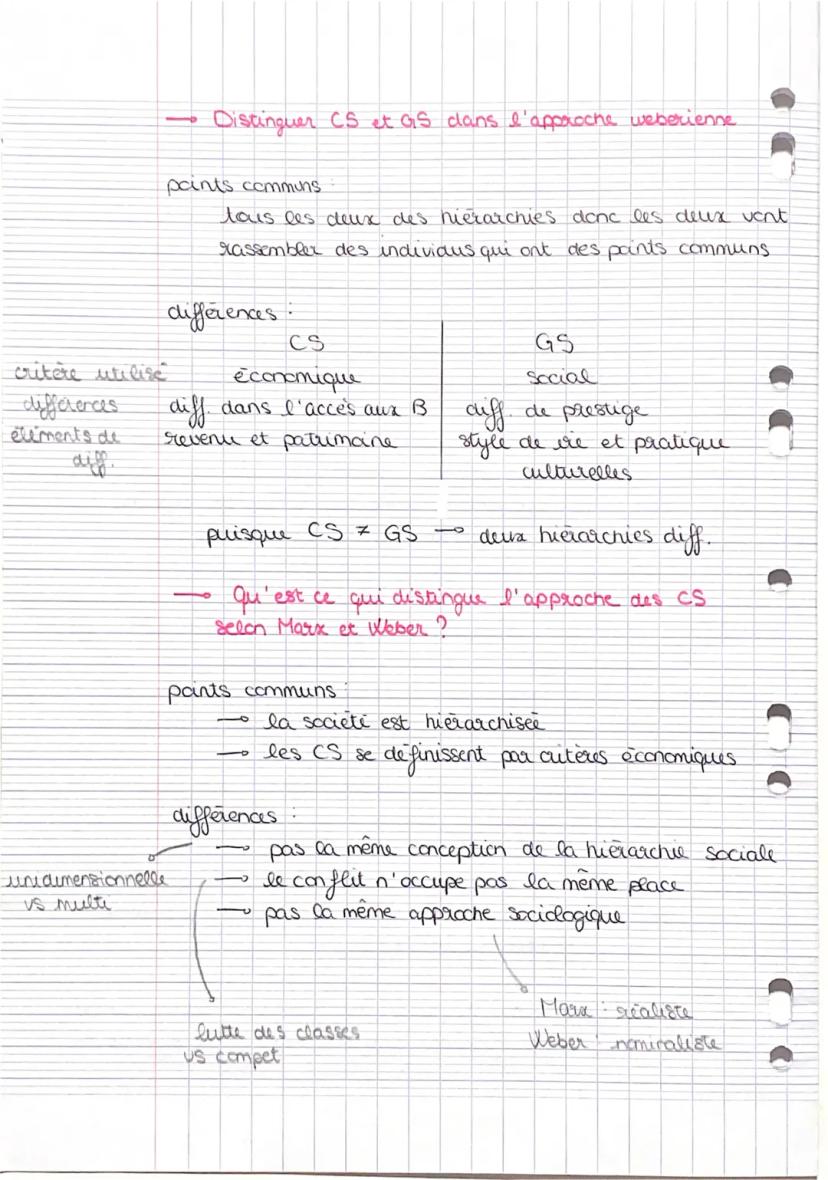 → Distinguer CS et GS dans l'approche weberienne
points communs :
tous les deux des hiérarchies donc les deux vont
rassembler des individus qui ont des points communs
différences :
CS GS
critère utilisé économique social
différences diff. dans l'accès aux B diff. de prestige
éléments de diff. revenu et patrimoine style de vie et pratique
culturelles
puisque CS ≠ GS → deux hiérarchies diff.
→ Qu'est ce qui distingue l'approche des CS
selon Marx et Weber ?
points communs :
→ la société est hiérarchisée
→ les CS se définissent par critères économiques
différences :
→ pas la même conception de la hiérarchie sociale
unidimensionnelle
vs multi
→ le conflit n'occupe pas la même place
→ pas la même approche sociologique
lutte des classes
vs compet
Marx : réaliste
Weber : nominaliste